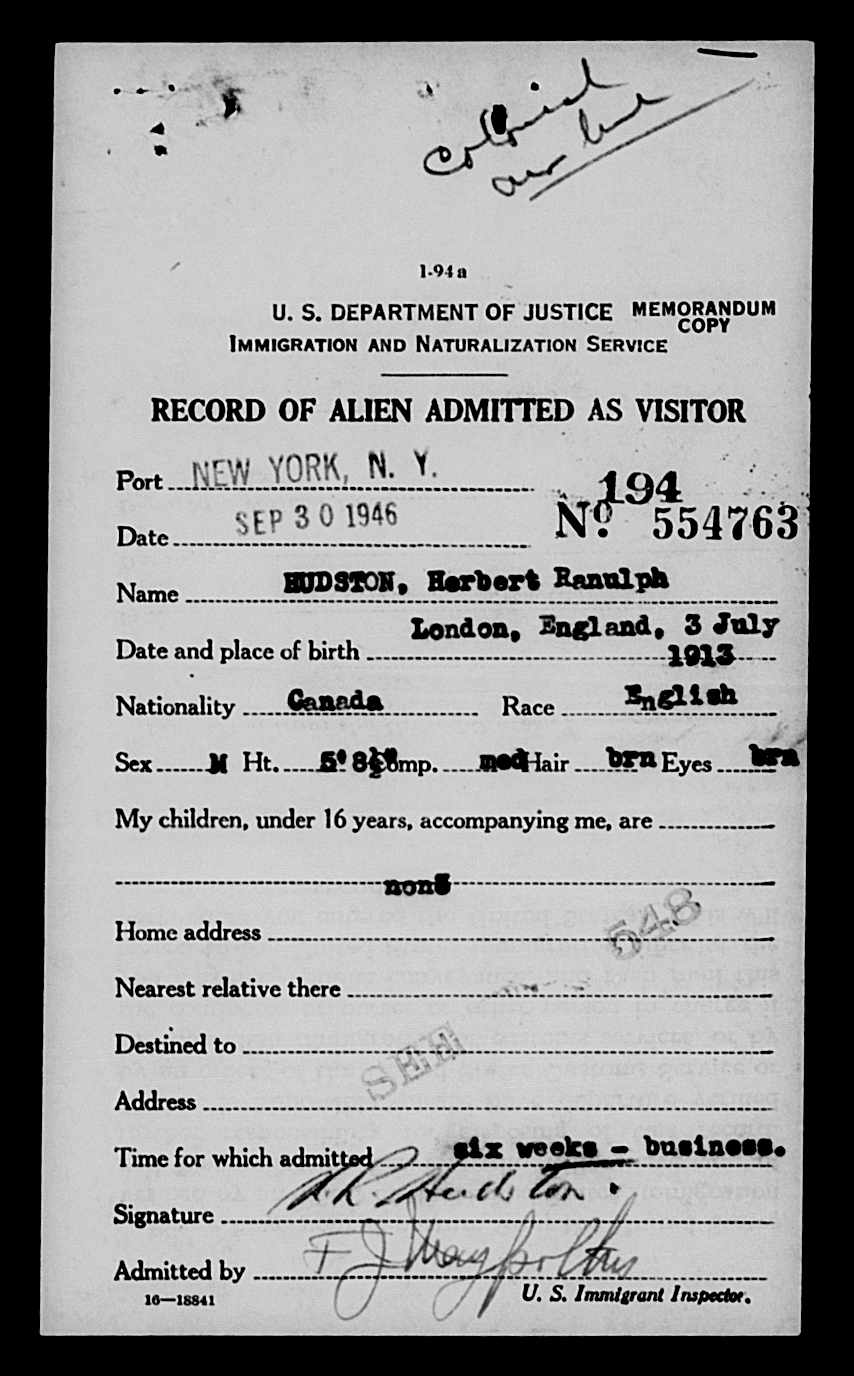 Colonial
air line
1-94a
U. S. DEPARTMENT OF JUSTICE MEMORANDUM COPY
IMMIGRATION AND NATURALIZATION SERVICE
RECORD OF ALIEN ADMITTED AS VISITOR
Port NEW YORK, N. Y.
194
Date SEP 30 1946 Nº 554763
Name HUDSTON, Herbert Ranulph
Date and place of birth London, England, 3 July
1913
Nationality Canada Race English
Sex M Ht. 5' 8½" Comp. med Hair brn Eyes brn
My children, under 16 years, accompanying me, are
none
548
Home address
Nearest relative there
Destined to
SEE
Address
Time for which admitted six weeks - business.
Signature H R Hudston.
Admitted by F J
16—18841 U. S. Immigrant Inspector.